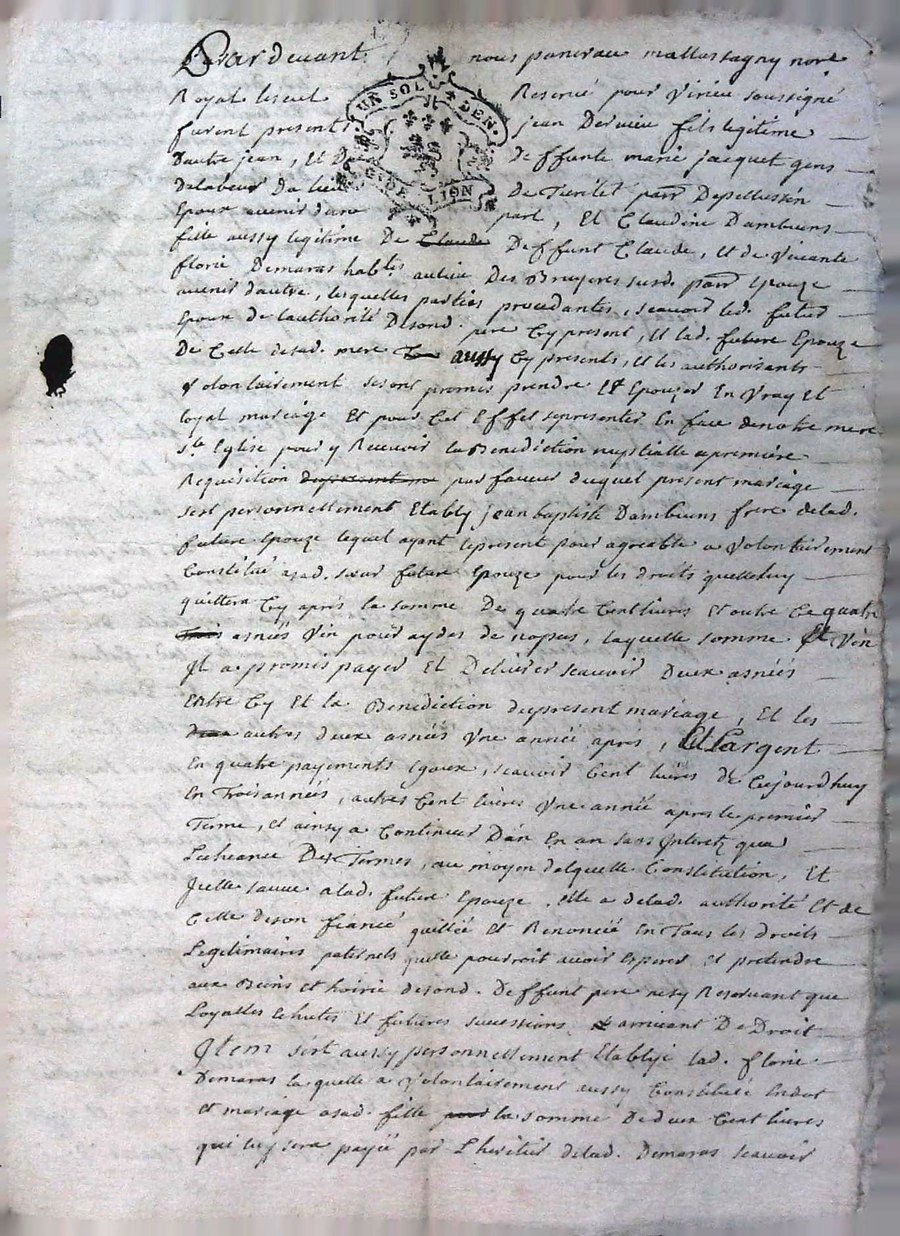 Pardevant nous pancrau mallassagny nore
UN SOL 4 DEN.
G. DE LION
Royal Reservé pour Virieu soussigné
furent presents jean Dervieu fils legitime
Dautre jean, et De deffunte marie jacquet gens
Delabeur du lieu de parr Depellussin
Epoux avenir dune part, Et Claudine Dambuens
fille aussy legitime De Claude Deffunt Claude, et de vivante
florie Demaras habtes au lieu Des Bruyeres susd. parr Epouze
avenir dautre, lesquelles parties procedantes, scavoir led. futur
Epoux de lauthorité Desond. pere Cy present, et lad. future Epouze
De Celle desad. mere aussy Cy presents, et les authorisants
volontairement se sont promis prendre Et Epouzer En vray Et
loyal mariage Et pour Cet Effet se presenter En face denotre mere
Ste Eglise pour y Recevoir la Benediction nuptialle a premiere
Requisition par faveur duquel present mariage
sest personnellement Etably jean baptiste Dambuens frere delad.
future Epouze lequel ayant le present pour agreable a volontairement
Constitué asad. sœur future Epouze pour les droits quelle luy
quittera Cy après la somme De quatre Cent livres et outre Ce quatre
trois asnées vin pour aydes de nopces, laquelle somme Et vin
Il a promis payer Et Delivrer scavoir Deux asnées
Entre Cy Et la Benediction dupresent mariage, Et les
deux autres deux asnées une année après, Et Largent
En quatre payements Egaux, scavoir Cent livres de Cejourdhuy
En Trois années, autres Cent livres une année apres le premier
Terme, et ainsy a Continuer Dan En an sans Interetz qua
Lecheance Des Termes, au moyen delquelle Constitution, Et
Icelle sauve alad. future Epouze, Elle a delad. authorité Et de
Celle deson fiancé quitté Et Renoncé En Tous les droits
Legitimaires paternels quelle pourroit avoir Esperer et pretendre
aux Biens et hoirie desond. Deffunt pere ne sy Reservant que
Loyalles Echutes Et futures successions arrivant De Droit
Item sest aussy personnellement Etablye lad. florie
Demaras laquelle a volontairement aussy Constitué Endot
et mariage asad. fille pour la somme De deux Cent livres
qui luy sera payée par Lheritier delad. Demaras scavoir